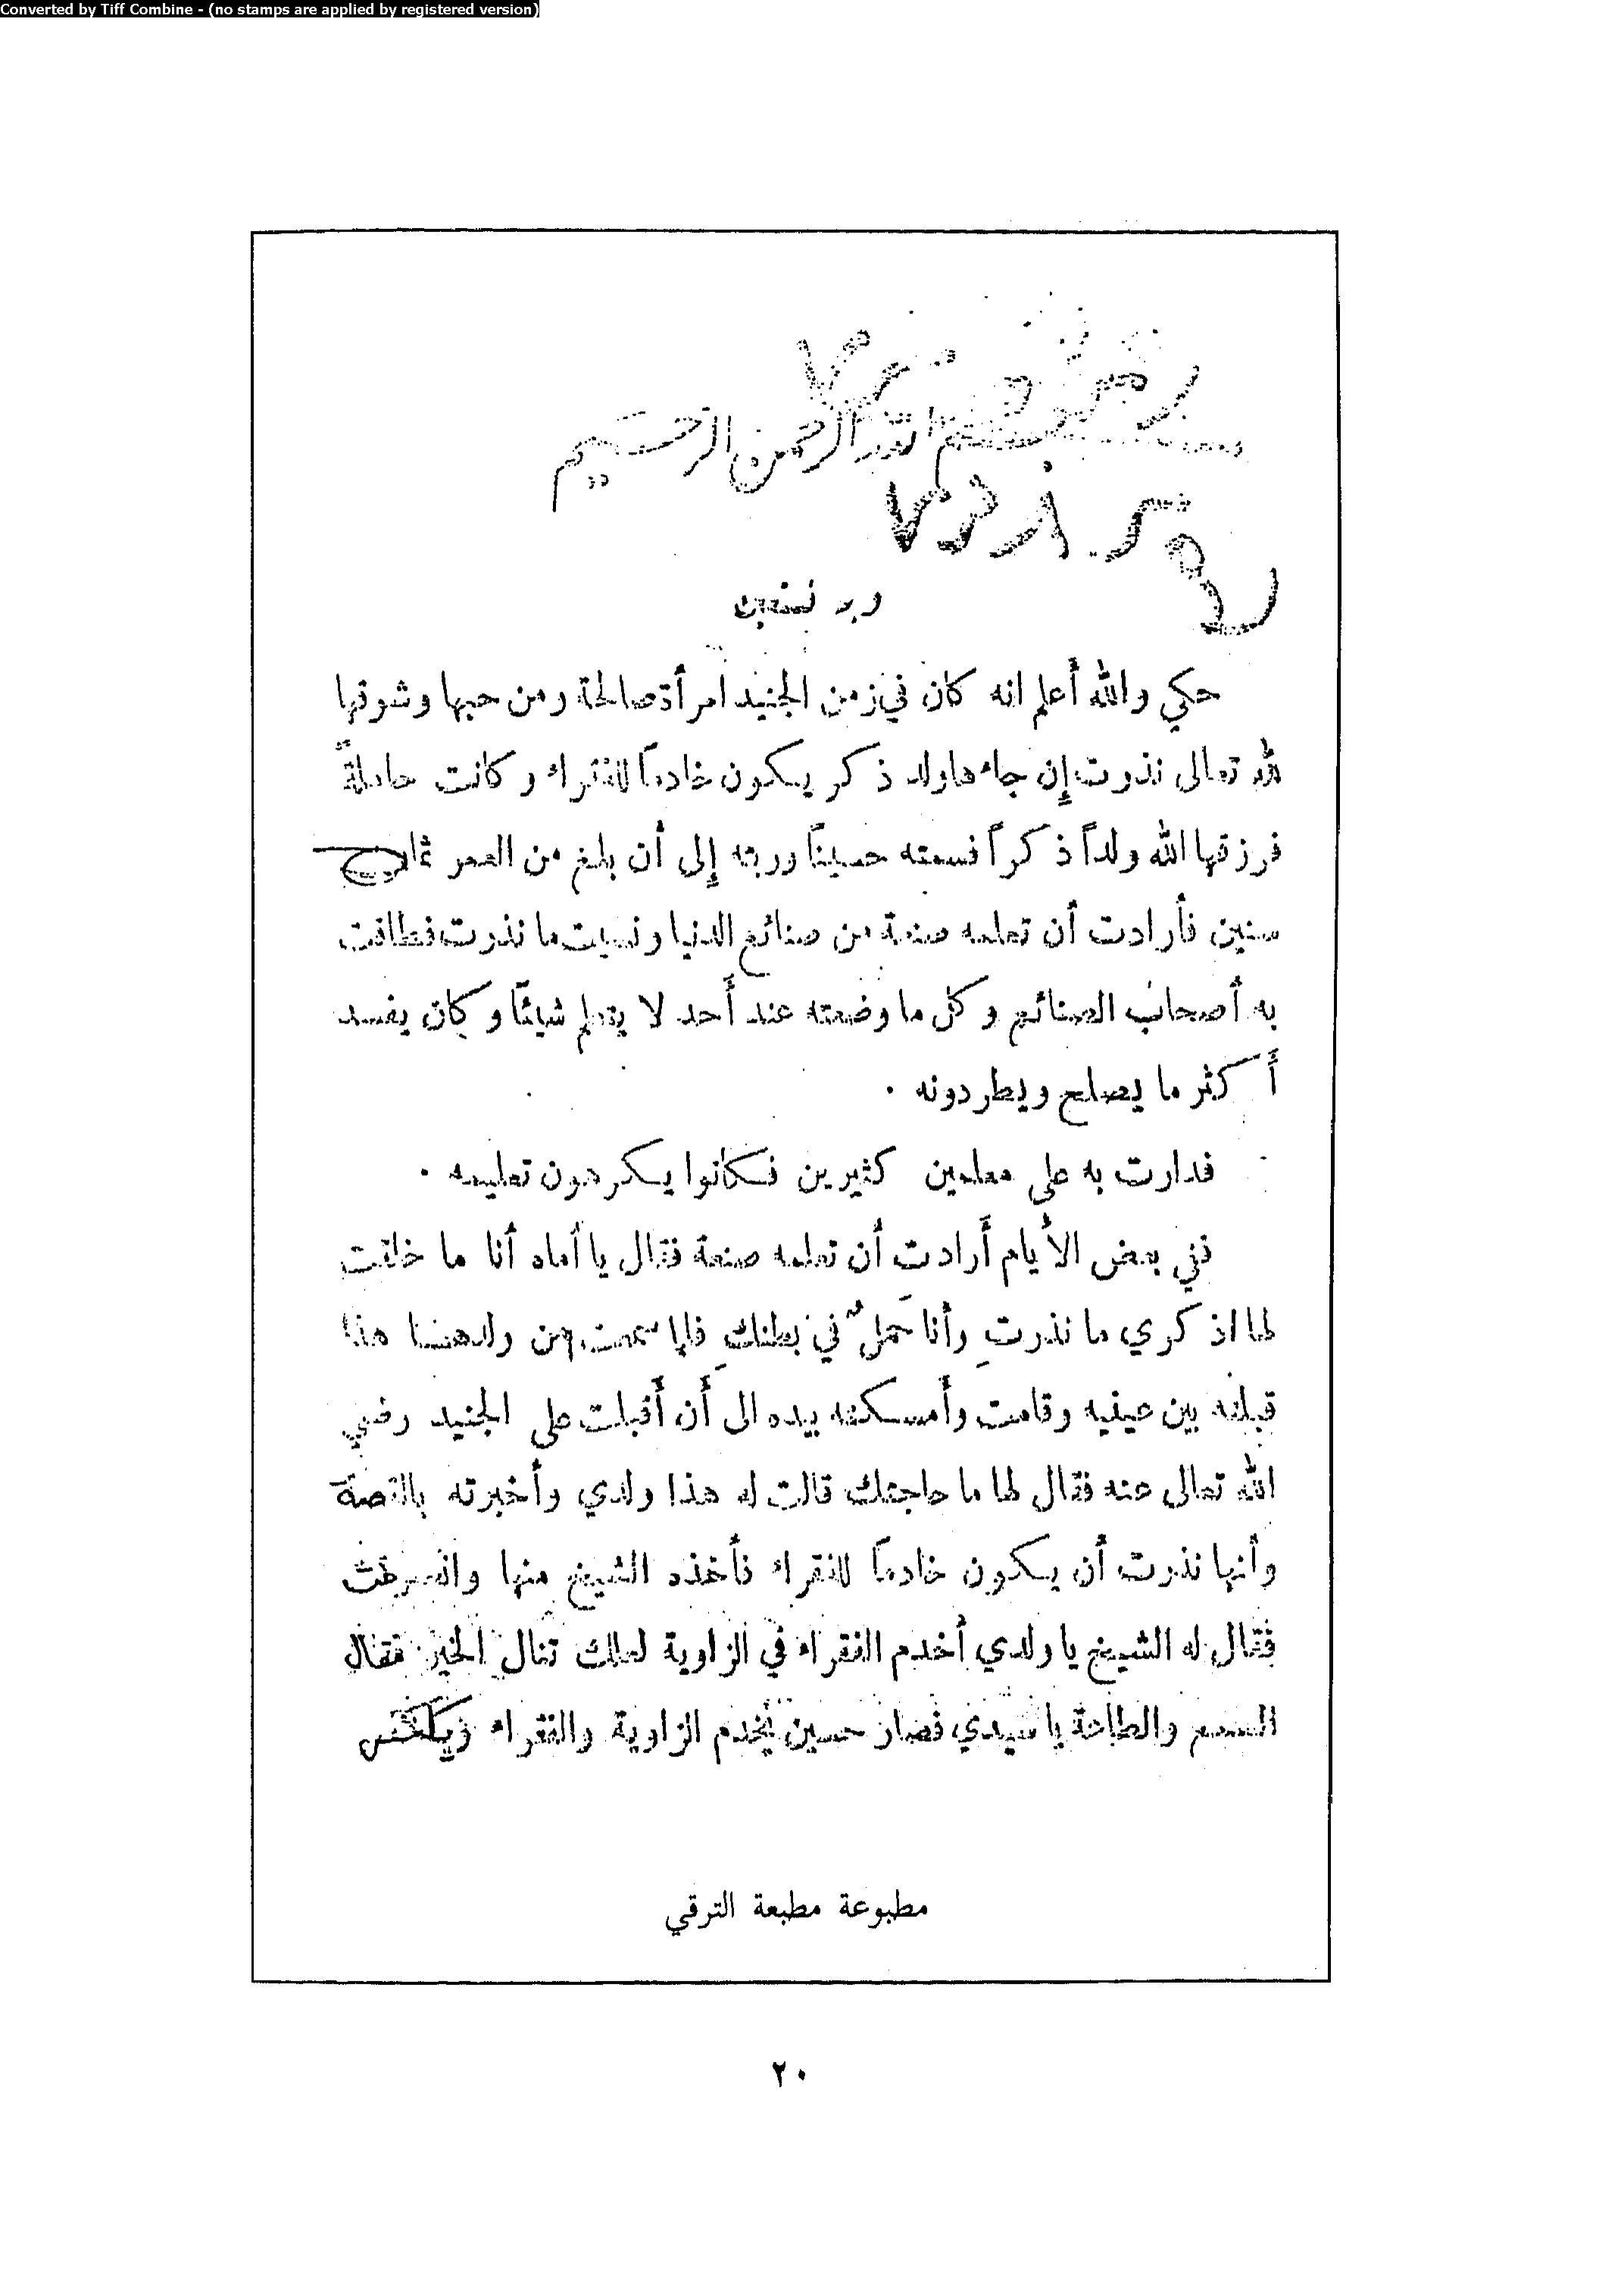 Converted by Tiff Combine - (no stamps are applied by registered version)
بسم الله الرحمن الرحيم
وبه نستعين
حكي والله أعلم انه كان في زمن الجنيد امرأة صالحة ومن حبها وشوقها
لله تعالى نذرت إن جاءها ولد ذكر يكون خادماً للفقراء وكانت حاملةً
فرزقها الله ولداً ذكراً فسمته حسيناً وربته إلى أن بلغ من العمر ثمان
سنين فأرادت أن تعلمه صنعة من صنائع الدنيا ونسيت ما نذرت فطافت
به أصحاب الصنائع وكل ما وضعته عند أحد لا يتعلم شيئاً وكان يفسد
أكثر ما يصلح ويطردونه .
فدارت به على معلمين كثيرين فكانوا يكرهون تعليمه .
ففي بعض الأيام أرادت أن تعلمه صنعة فقال يا أماه أنا ما خلقت
لها اذكري ما نذرتِ وأنا حَملٌ في بطنكِ فلما سمعت من ولدها هذا
قبلته بين عينيه وقامت وأمسكته بيده الى أن أقبلت على الجنيد رضي
الله تعالى عنه فقال لها ما حاجتك قالت له هذا ولدي وأخبرته بالقصة
وأنها نذرت أن يكون خادماً للفقراء فأخذه الشيخ منها وانصرفت
فقال له الشيخ يا ولدي أخدم الفقراء في الزاوية لعلك تنال الخير فقال
السمع والطاعة يا سيدي فصار حسين يخدم الزاوية والفقراء ويكنس
مطبوعة مطبعة الترقي
٢٠